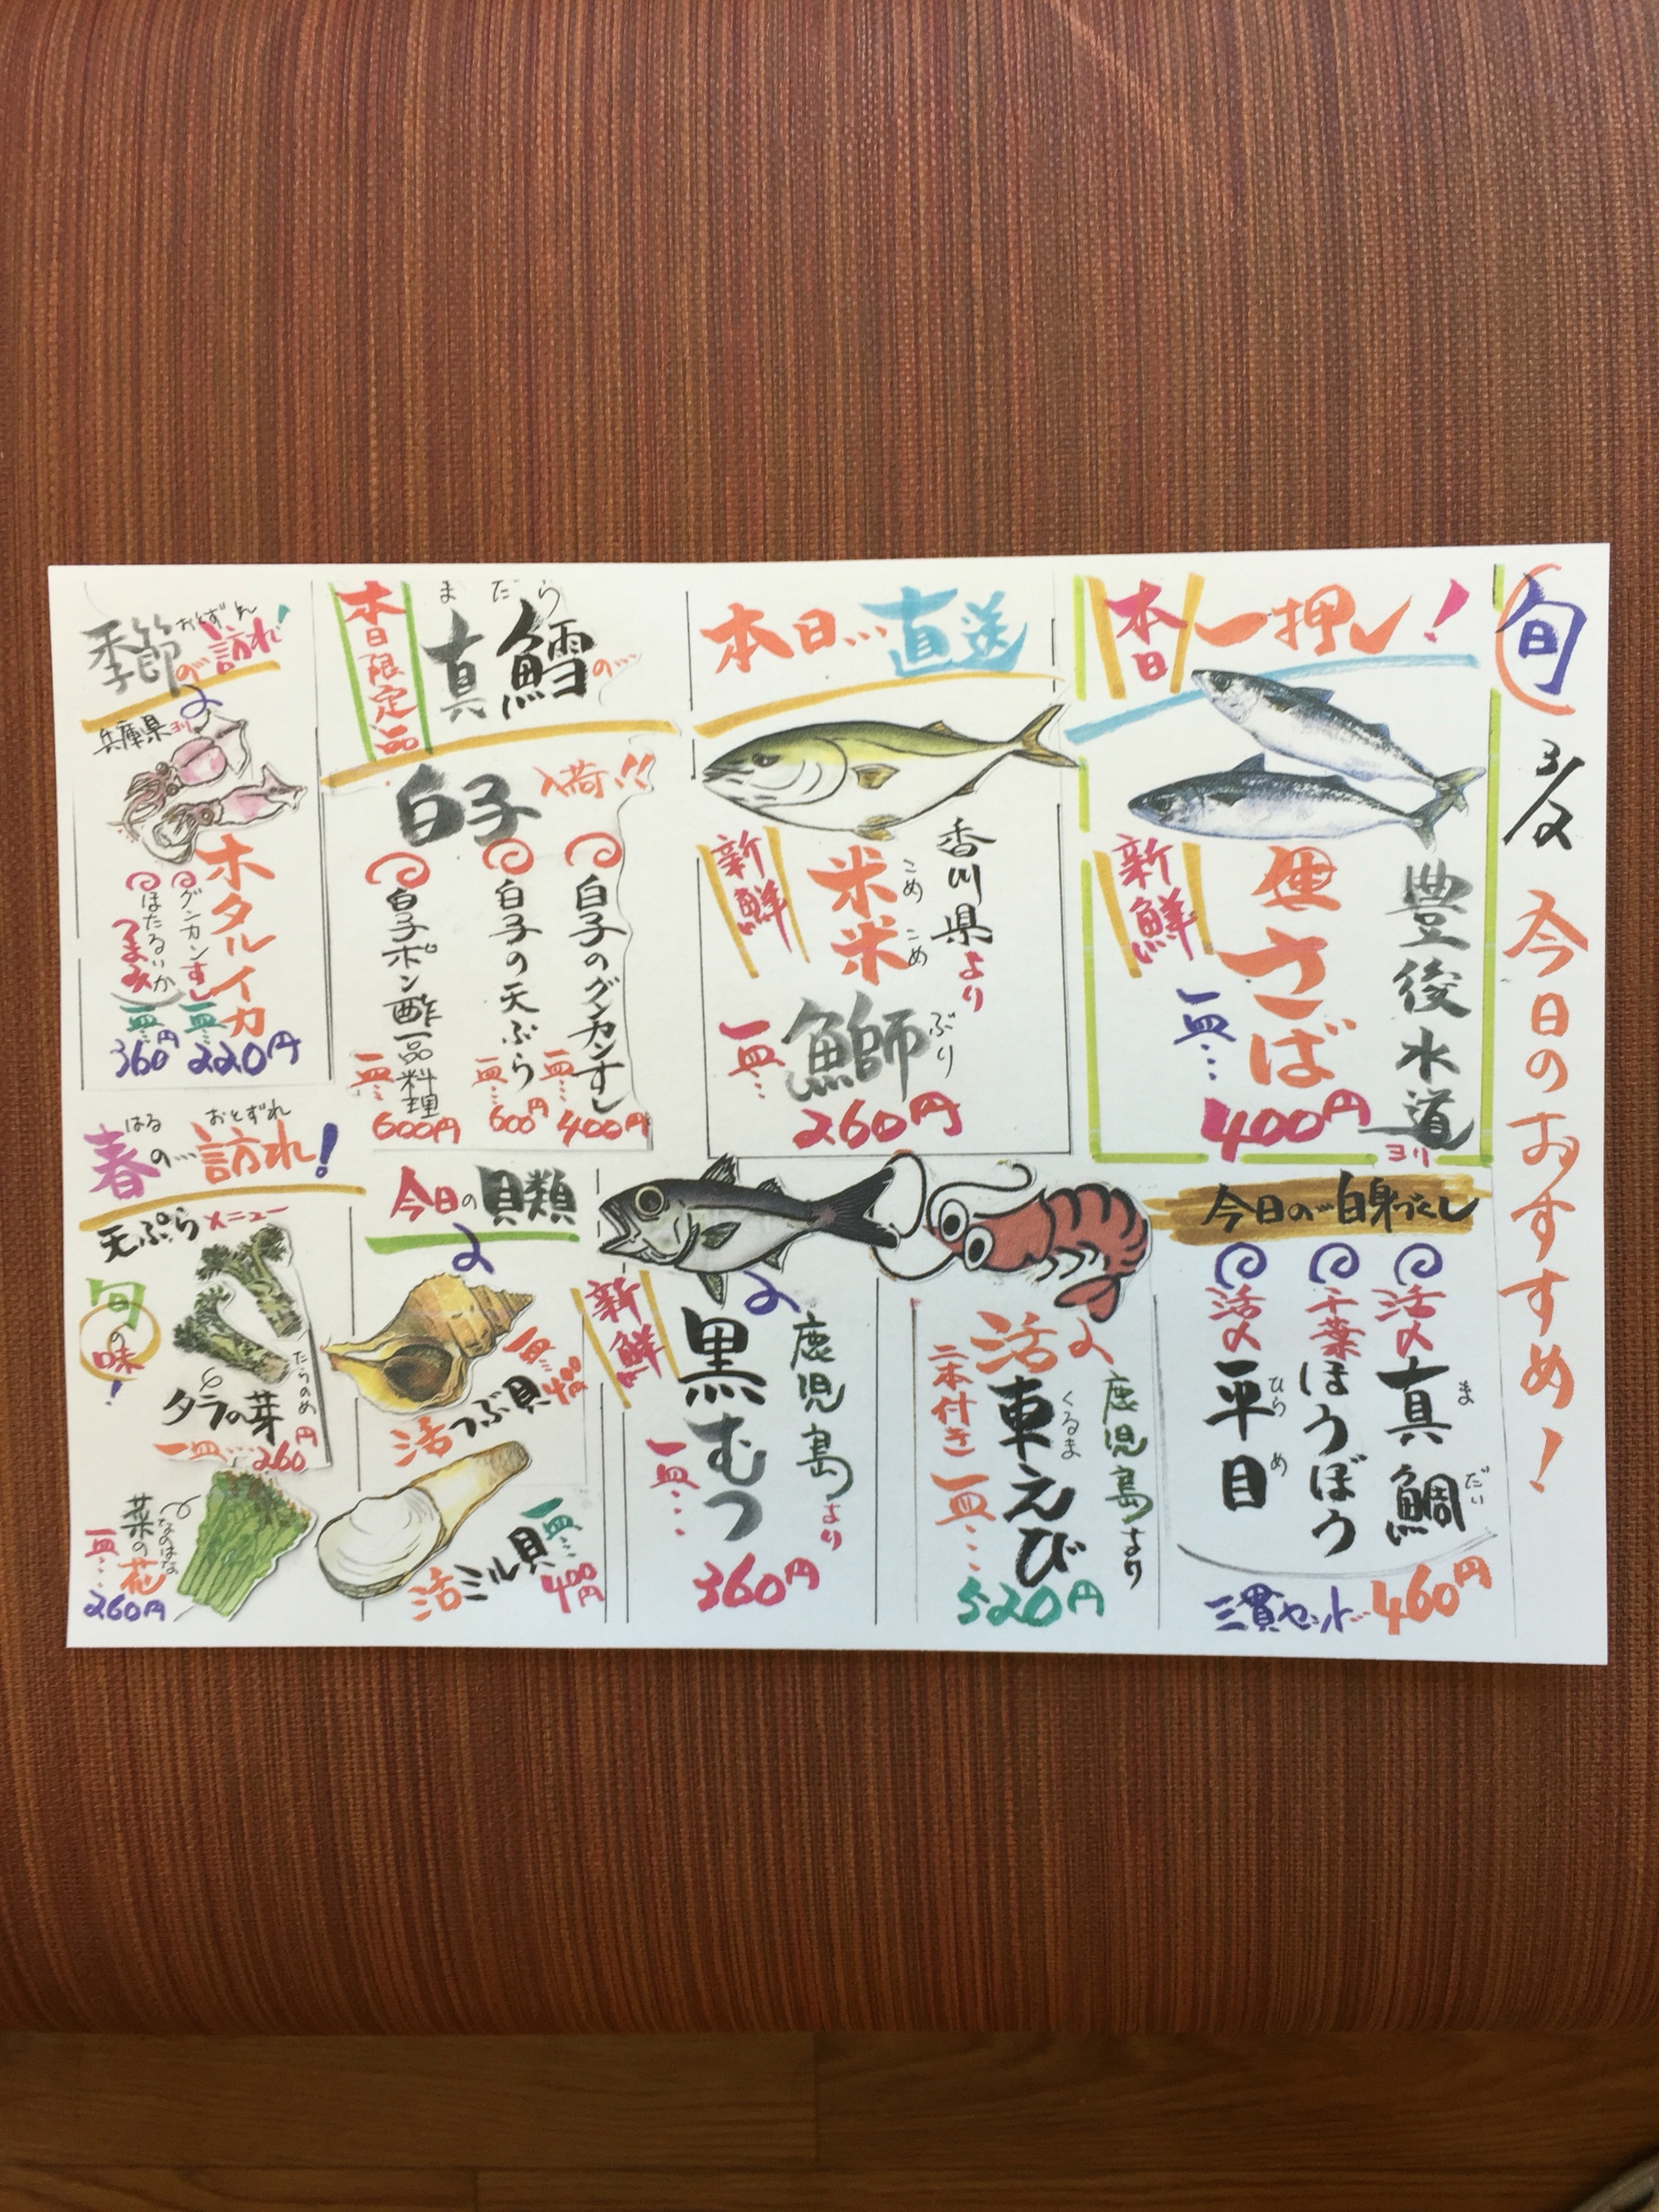 旬
3/2
今日のおすすめ!
本日一押し!
豊後水道
ヨリ
さば
新鮮
一皿…
400円
本日…直送
香川県より
米米
こめこめ
鰤
ぶり
新鮮
一皿…
260円
本日限定品
真鱈の…
まだら
白子
入荷!!
白子のグンカンすし
一皿…
400円
白子の天ぷら
一皿…
600円
白子ポン酢一品料理
一皿…
600円
季節の訪れ!
おとずれ
兵庫県ヨリ
ホタルイカ
グンカンすし
一皿…
220円
ほたるいか
つまみ
一皿…
360円
今日の…白身づくし
活〆
真鯛
まだい
千葉
ほうぼう
活〆
平目
ひらめ
三貫セット…460円
鹿児島より
活車えび
くるま
二本付き
一皿…
520円
鹿児島より
黒むつ
新鮮
一皿…
360円
今日の貝類
活つぶ貝
一皿…
400円
活ミル貝
一皿…
400円
春の…訪れ!
はる
おとずれ
天ぷらメニュー
旬の味!
タラの芽
たらのめ
一皿…260円
菜の花
なのはな
一皿…
260円